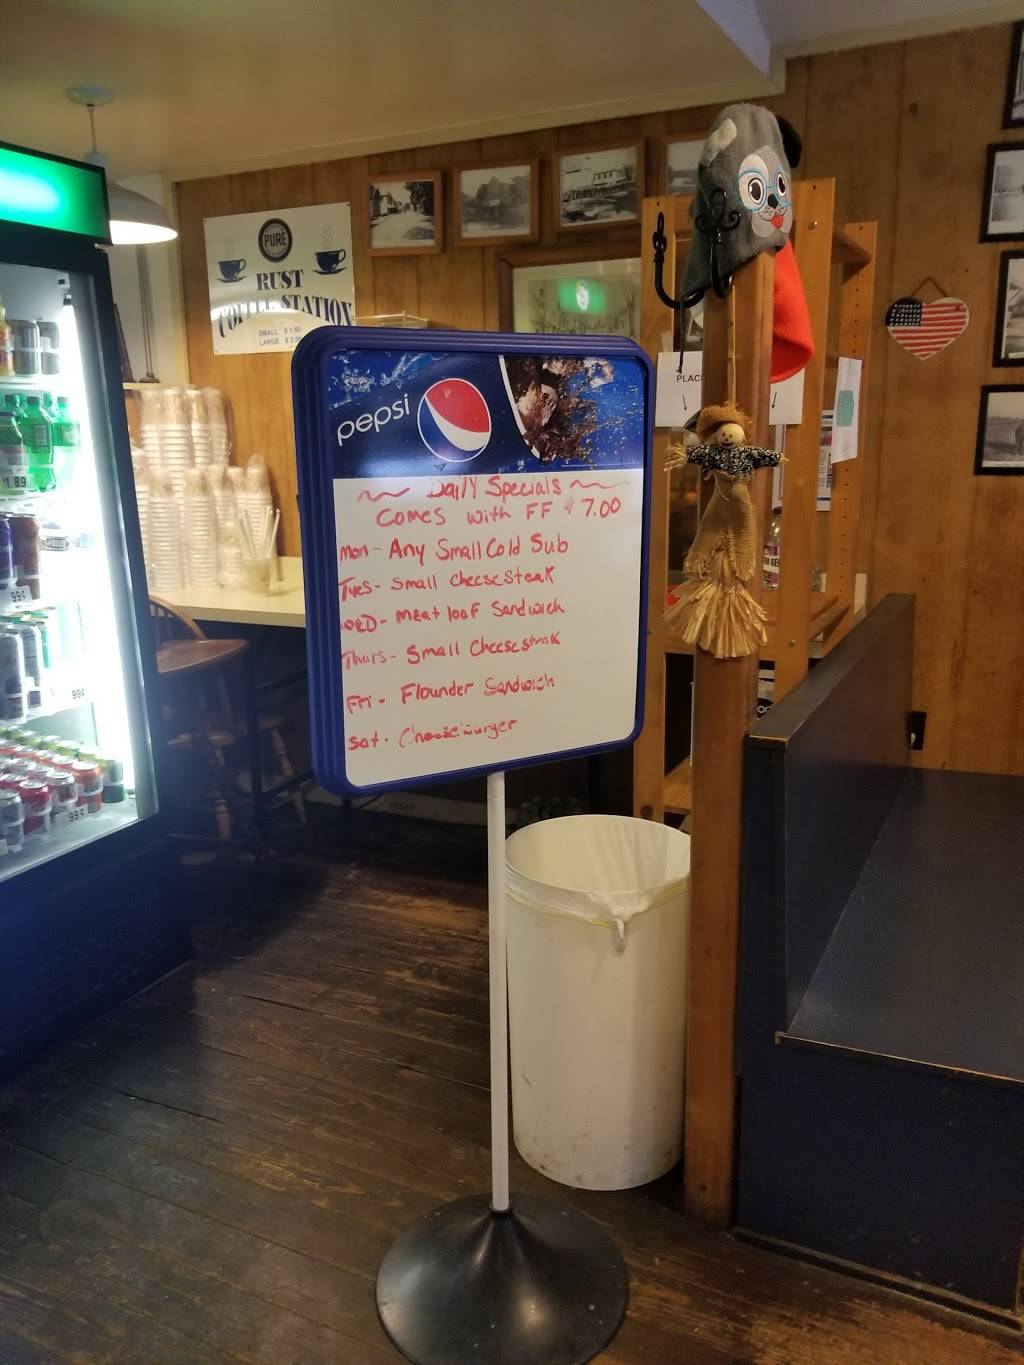 PURE
RUST
COFFEE STATION
SMALL $1.50
LARGE
pepsi
Daily Specials
Comes with FF $7.00
Mon - Any Small Cold Sub
Tues - Small cheesesteak
WED - Meatloaf Sandwich
Thurs - Small Cheesesteak
Fri - Flounder Sandwich
Sat - Cheeseburger
PLAC
1.89
99¢
99¢
99¢